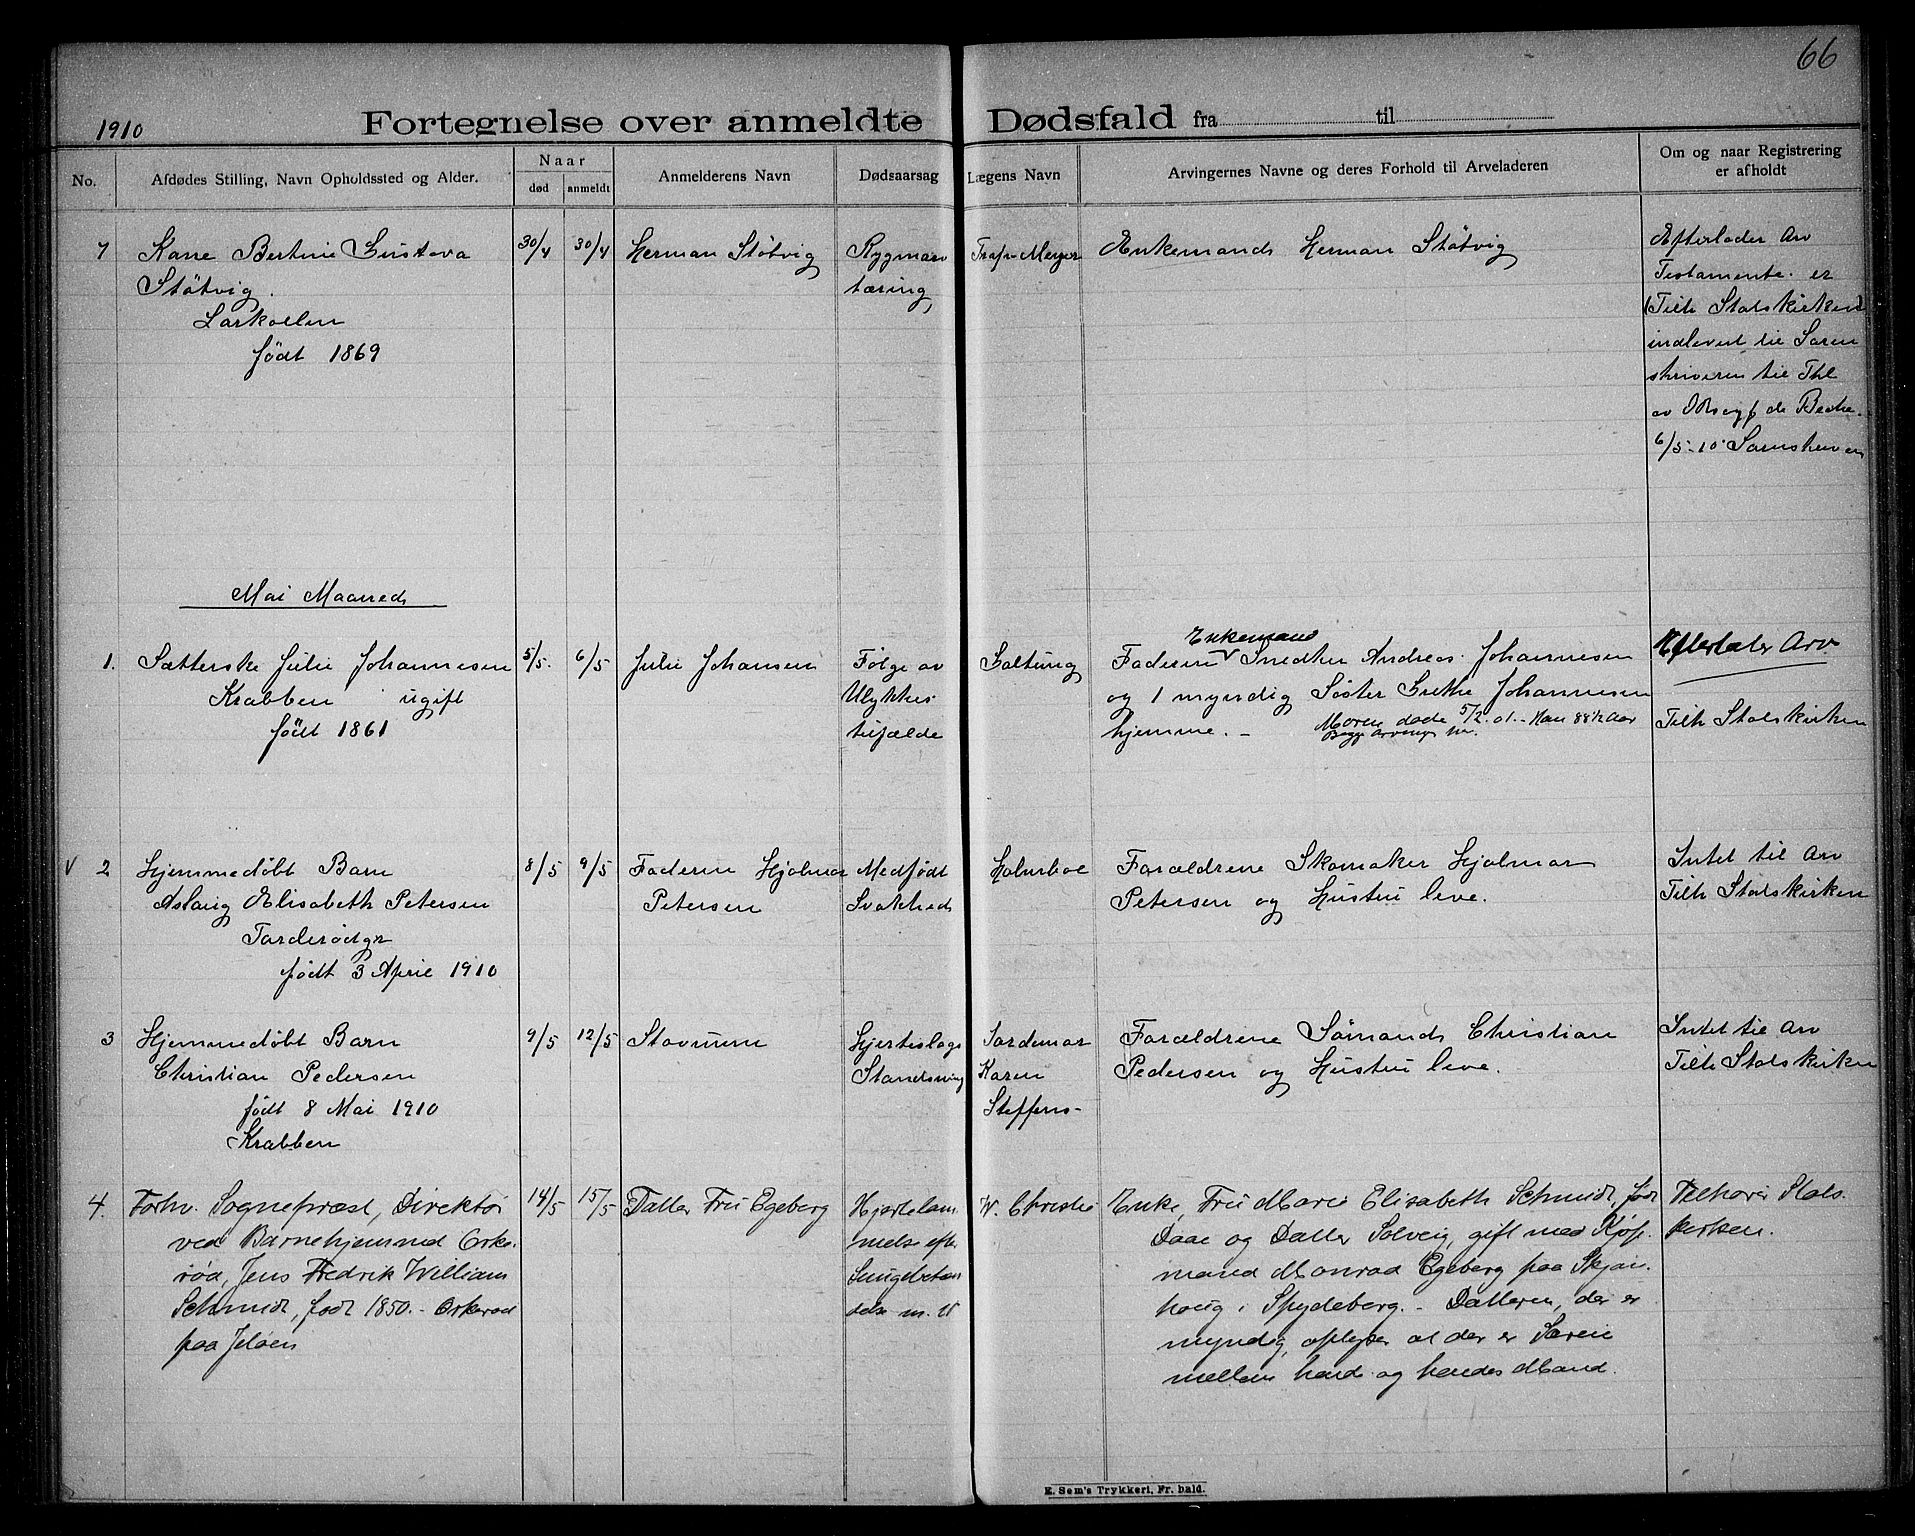 66
1910
Fortegnelse over anmeldte Dødsfald fra til
No.
Afdødes Stilling, Navn Opholdssted og Alder.
Naar
død
anmeldt
Anmelderens Navn
Dødsaarsag
Lægens Navn
Arvingernes Navne og deres Forhold til Arveladeren
Om og naar Registrering
er afholdt
7
Kone Bertine Gustava
Støtvig.
Larkollen
født 1869
30/4
30/4
Herman Støtvig
Rygmarv
tæring
Meyer
Enkemand Herman Støtvig
Efterlader Arv
Testamente er
(Tilh Statskirken)
indlevert til Soren
skriveren til Thl
av
6/5-10
Mai Maaned
1.
Julie Johannesen
Krabben ugift
født 1861
5/5.
6/5
Julie Johansen
Følge av
Ulykkes
tilfælde
Galtung
Enkemand
Faderen Snedker Andreas Johannesen
og 1 myndig Søster Grethe Johannesen
hjemme. - Moren døde 5/2.01. - Han 88½ Aar
Begge Arvinger
Efterlater Arv
Tilh Statskirken
V 2
Hjemmedøbt Barn
Aslaug Elisabeth Petersen
Tarderødgr
født 3 April 1910
8/5
9/5
Faderen Hjalmar
Petersen
Medfødt
Svakhed
Holmboe
Forældrene Skomaker Hjalmar
Petersen og Hustru leve.
Intet til Arv
Tilh Statskirken
3
Hjemmedøbt Barn
Christian Pedersen
født 8 Mai 1910
Krabben
9/5
12/5
Stavnum
Hjerteslags
Standsning
Jordemor
Karen
Steffens-
Forældrene Sømand Christian
Pedersen og Hustru leve.
Intet til Arv
Tilh Statskirken
4.
Forhv. Sogneprest, Direktør
ved Barnehjemmed Orke-
rød, Jens Fredrik William
Schmidt, født 1850. - Orkerød
paa Jeløen
14/5
15/5
Datter Fru Egeberg
Hjertelam
melse efter
Lungebetæn
delse m. V
W. Christie
Enke, Fru Marie Elisabeth Schmidt, født
Daae og Datter Solveig, gift med Kjøp-
mand Monrad Egeberg paa Skjøn-
haug i Spydeberg. - Datteren, der er
myndig, oplyser at der er Særeie
mellem hende og hendes Mand.
Tilhører Stats-
kirken.
E. Sem's Trykkeri, Fr.hald.